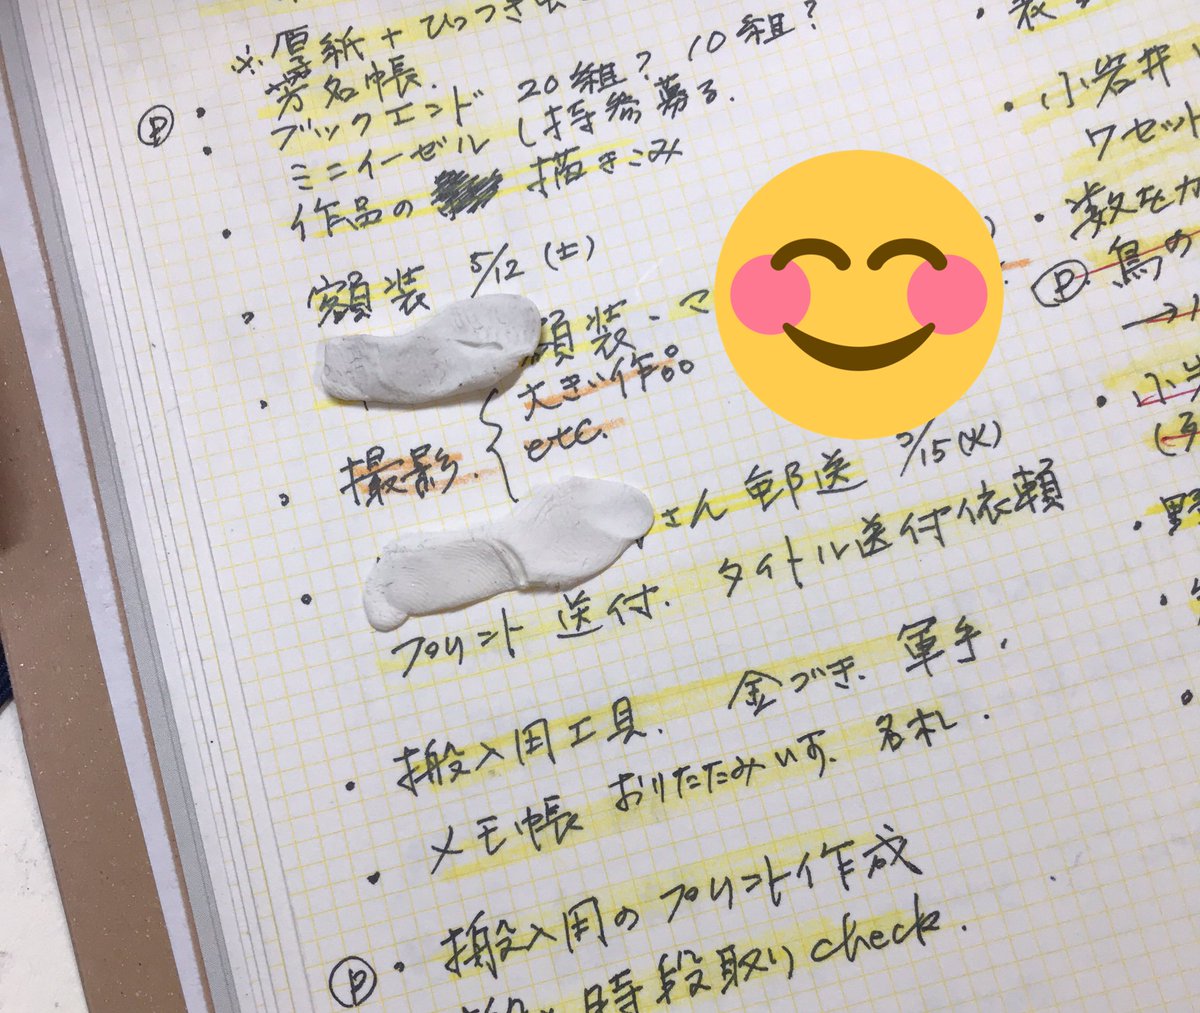 ※厚紙+ひっつき
芳名帳.
Ⓟ・ブックエンド 20組? 10組?
・ミニイーゼル し持参募る.
・作品の 描きこみ
・額装 5/12 (土)
額装
大きい作品
・撮影. etc.
さん郵送 /15(火)
・プリント 送付. タイトル送付依頼
・搬入用工具. 金づち. 軍手.
・メモ帳 おりたたみいす. 名札.
Ⓟ・搬入用のプリント作成
時 段取り check.
・小岩井
ワゼット
・数を
Ⓟ. 鳥の
→
・小岩
・野